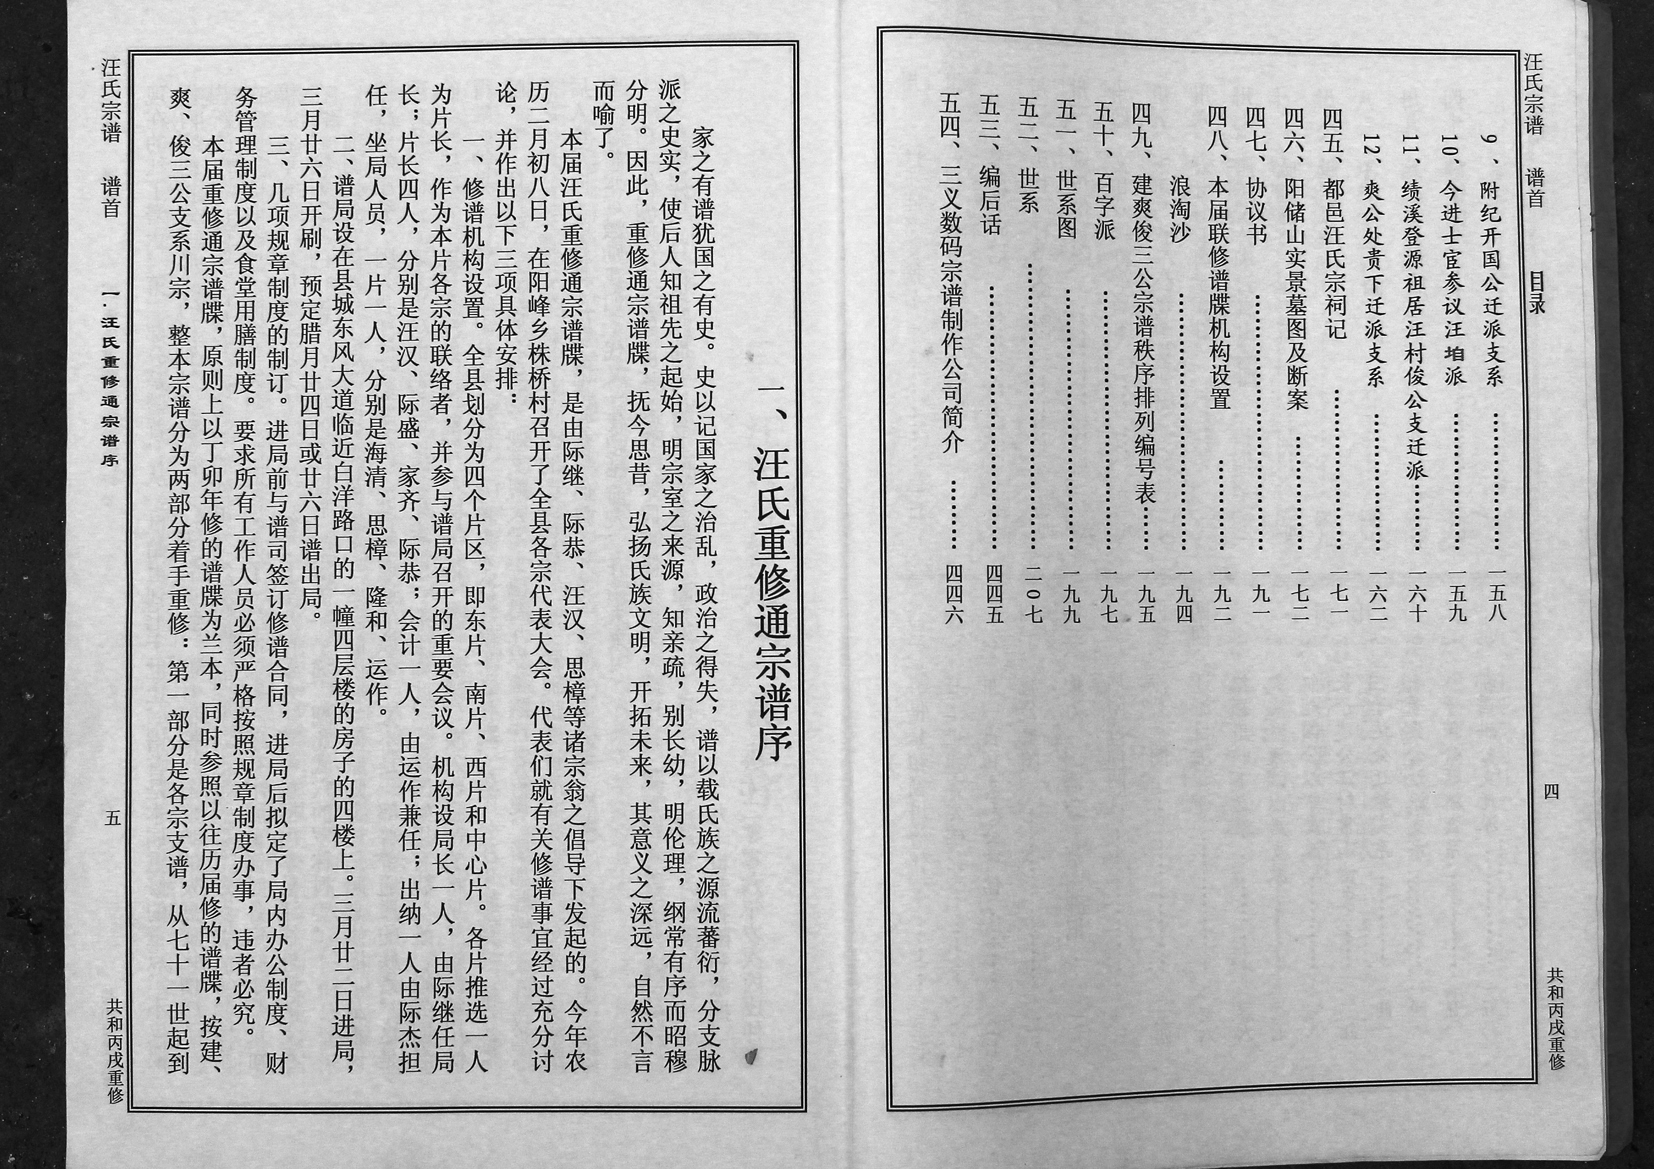 汪氏宗谱 谱首 目录 四 共和丙戌重修
9、附纪开国公迁派支系 一五八
10、今进士宦参议汪珀派 一五九
11、绩溪登源祖居汪村俊公支迁派 一六十
12、爽公处贵下迁派支系 一六二
四五、都邑汪氏宗祠记 一七一
四六、阳储山实景墓图及断案 一七二
四七、协议书 一九一
四八、本届联修谱牒机构设置 一九二
浪淘沙 一九四
四九、建爽俊三公宗谱秩序排列编号表 一九五
五十、百字派 一九七
五一、世系图 一九九
五二、世系 二0七
五三、编后话 四四五
五四、三义数码宗谱制作公司简介 四四六
一、汪氏重修通宗谱序
家之有谱犹国之有史。史以记国家之治乱，政治之得失，谱以载氏族之源流蕃衍，分支脉
派之史实，使后人知祖先之起始，明宗室之来源，知亲疏，别长幼，明伦理，纲常有序而昭穆
分明。因此，重修通宗谱牒，抚今思昔，弘扬氏族文明，开拓未来，其意义之深远，自然不言
而喻了。
本届汪氏重修通宗谱牒，是由际继、际恭、汪汉、思樟等诸宗翁之倡导下发起的。今年农
历二月初八日，在阳峰乡株桥村召开了全县各宗代表大会。代表们就有关修谱事宜经过充分讨
论，并作出以下三项具体安排：
一、修谱机构设置。全县划分为四个片区，即东片、南片、西片和中心片。各片推选一人
为片长，作为本片各宗的联络者，并参与谱局召开的重要会议。机构设局长一人，由际继任局
长；片长四人，分别是汪汉、际盛、家齐、际恭；会计一人，由运作兼任；出纳一人由际杰担
任，坐局人员，一片一人，分别是海清、思樟、隆和、运作。
二、谱局设在县城东风大道临近白洋路口的一幢四层楼的房子的四楼上。三月廿二日进局，
三月廿六日开刷，预定腊月廿四日或廿六日谱出局。
三、几项规章制度的制订。进局前与谱司签订修谱合同，进局后拟定了局内办公制度、财
务管理制度以及食堂用膳制度。要求所有工作人员必须严格按照规章制度办事，违者必究。
本届重修通宗谱牒，原则上以丁卯年修的谱牒为兰本，同时参照以往历届修的谱牒，按建、
爽、俊三公支系川宗，整本宗谱分为两部分着手重修：第一部分是各宗支谱，从七十一世起到
汪氏宗谱 谱首 一.汪氏重修通宗谱序 五 共和丙戌重修